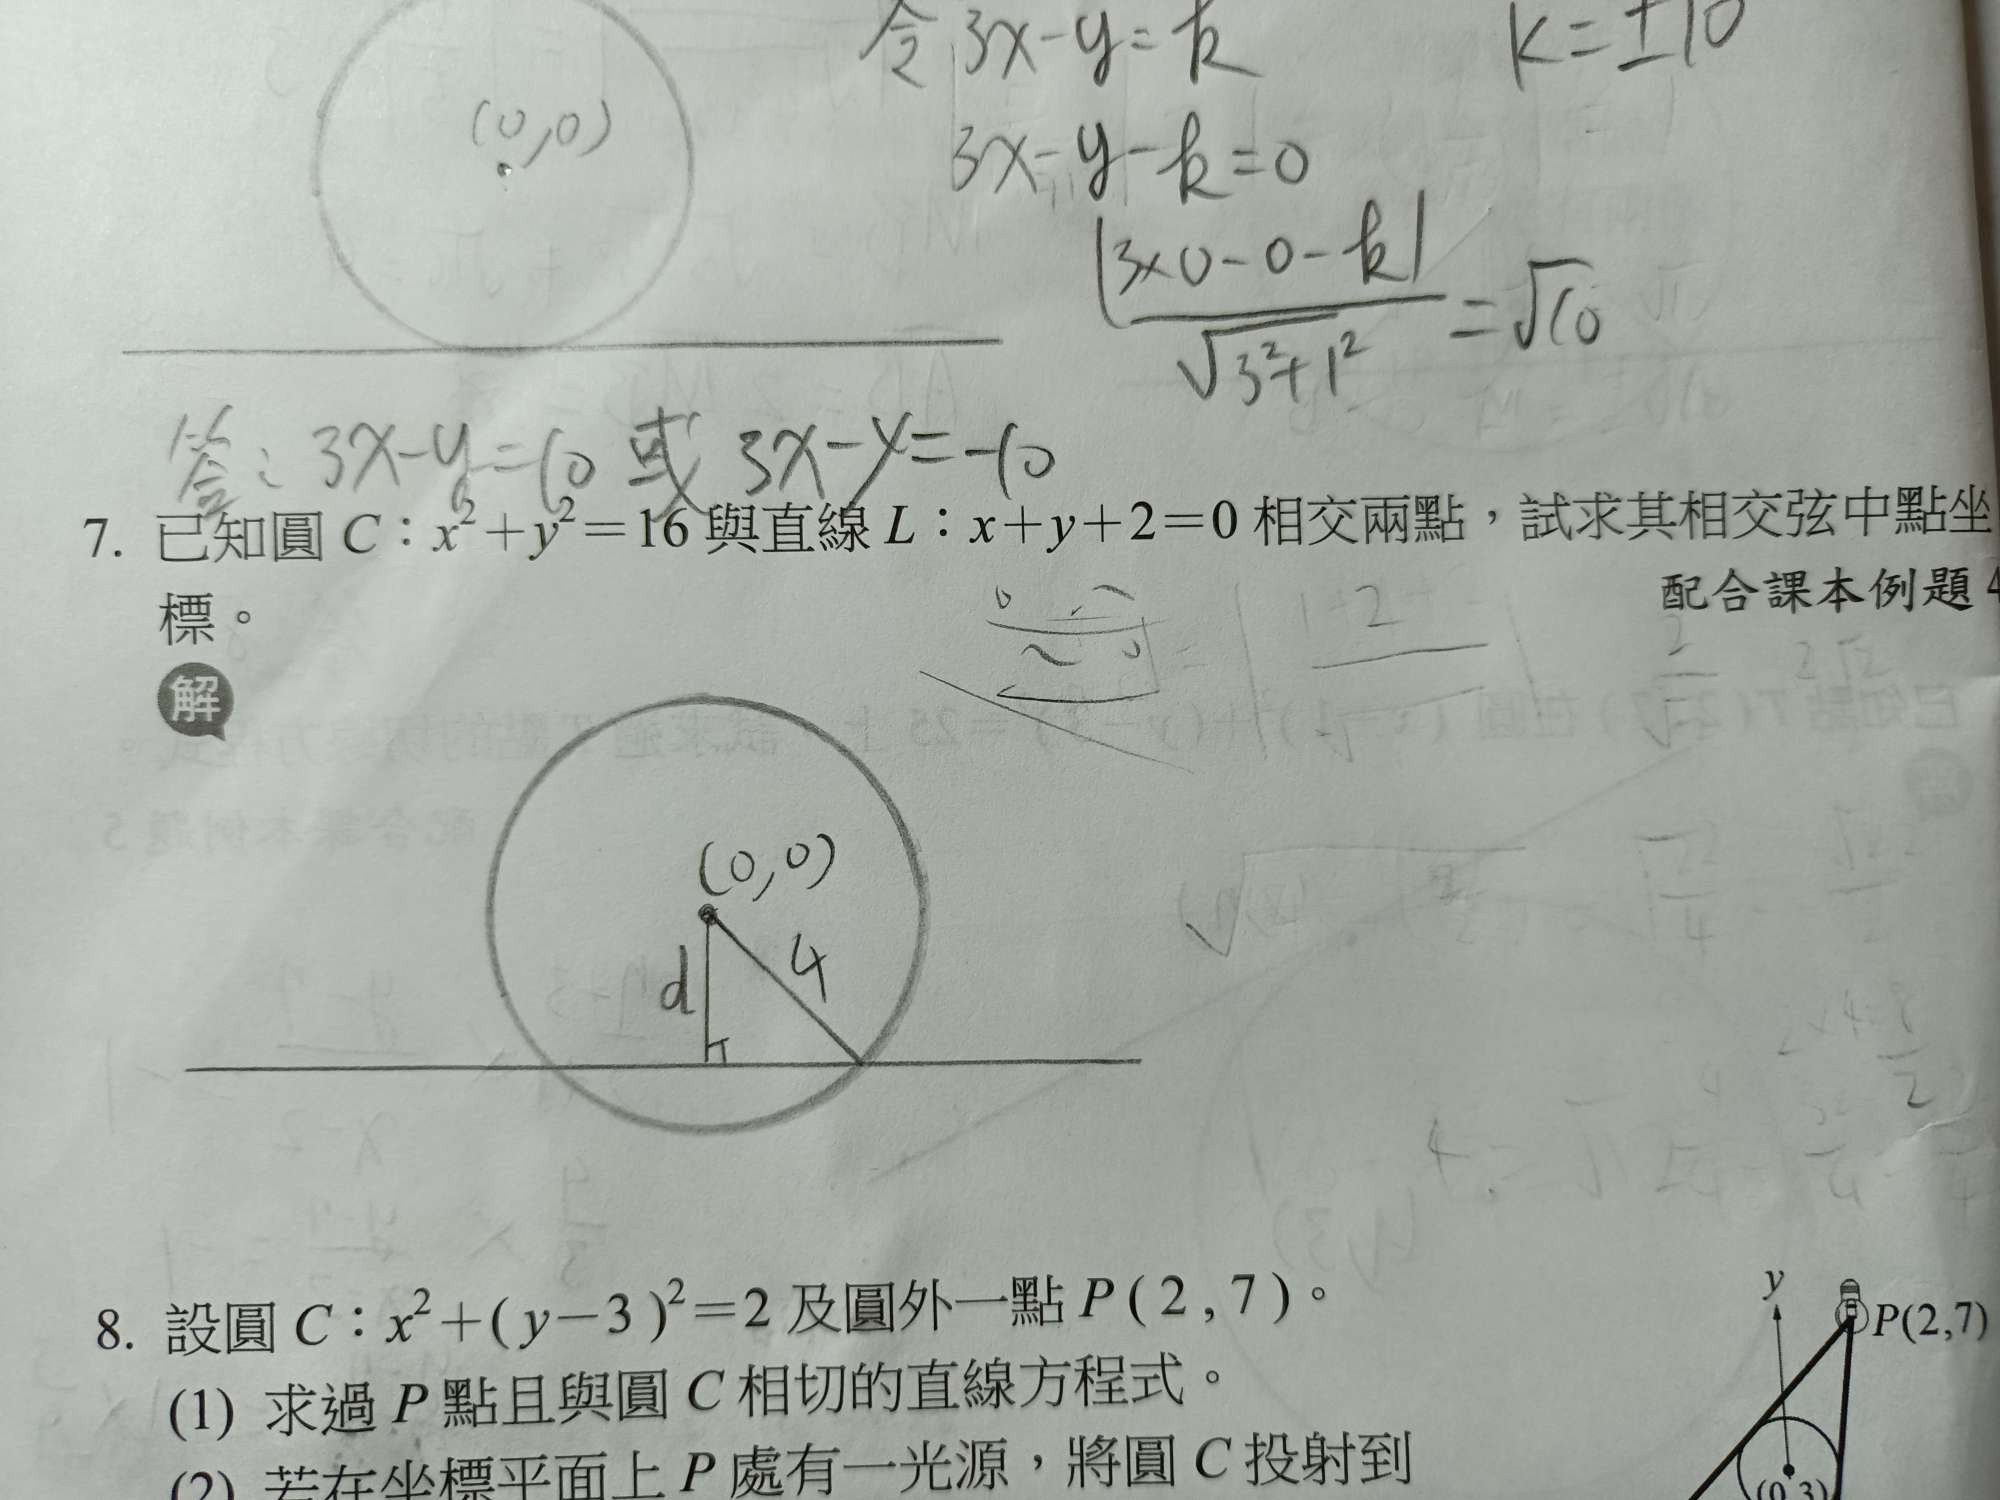 令 3x-y=k
k=±10
(0,0)
3x-y-k=0
|3×0-0-k|
√3²+1² =√10
答：3x-y=10 或 3x-y=-10
7. 已知圓 C：x²+y²=16 與直線 L：x+y+2=0 相交兩點，試求其相交弦中點坐
標。
配合課本例題 4
解
(0,0)
d
4
8. 設圓 C：x²+(y-3)²=2 及圓外一點 P(2,7)。
(1) 求過 P 點且與圓 C 相切的直線方程式。
(2) 若在坐標平面上 P 處有一光源，將圓 C 投射到
y
P(2,7)
(0,3)